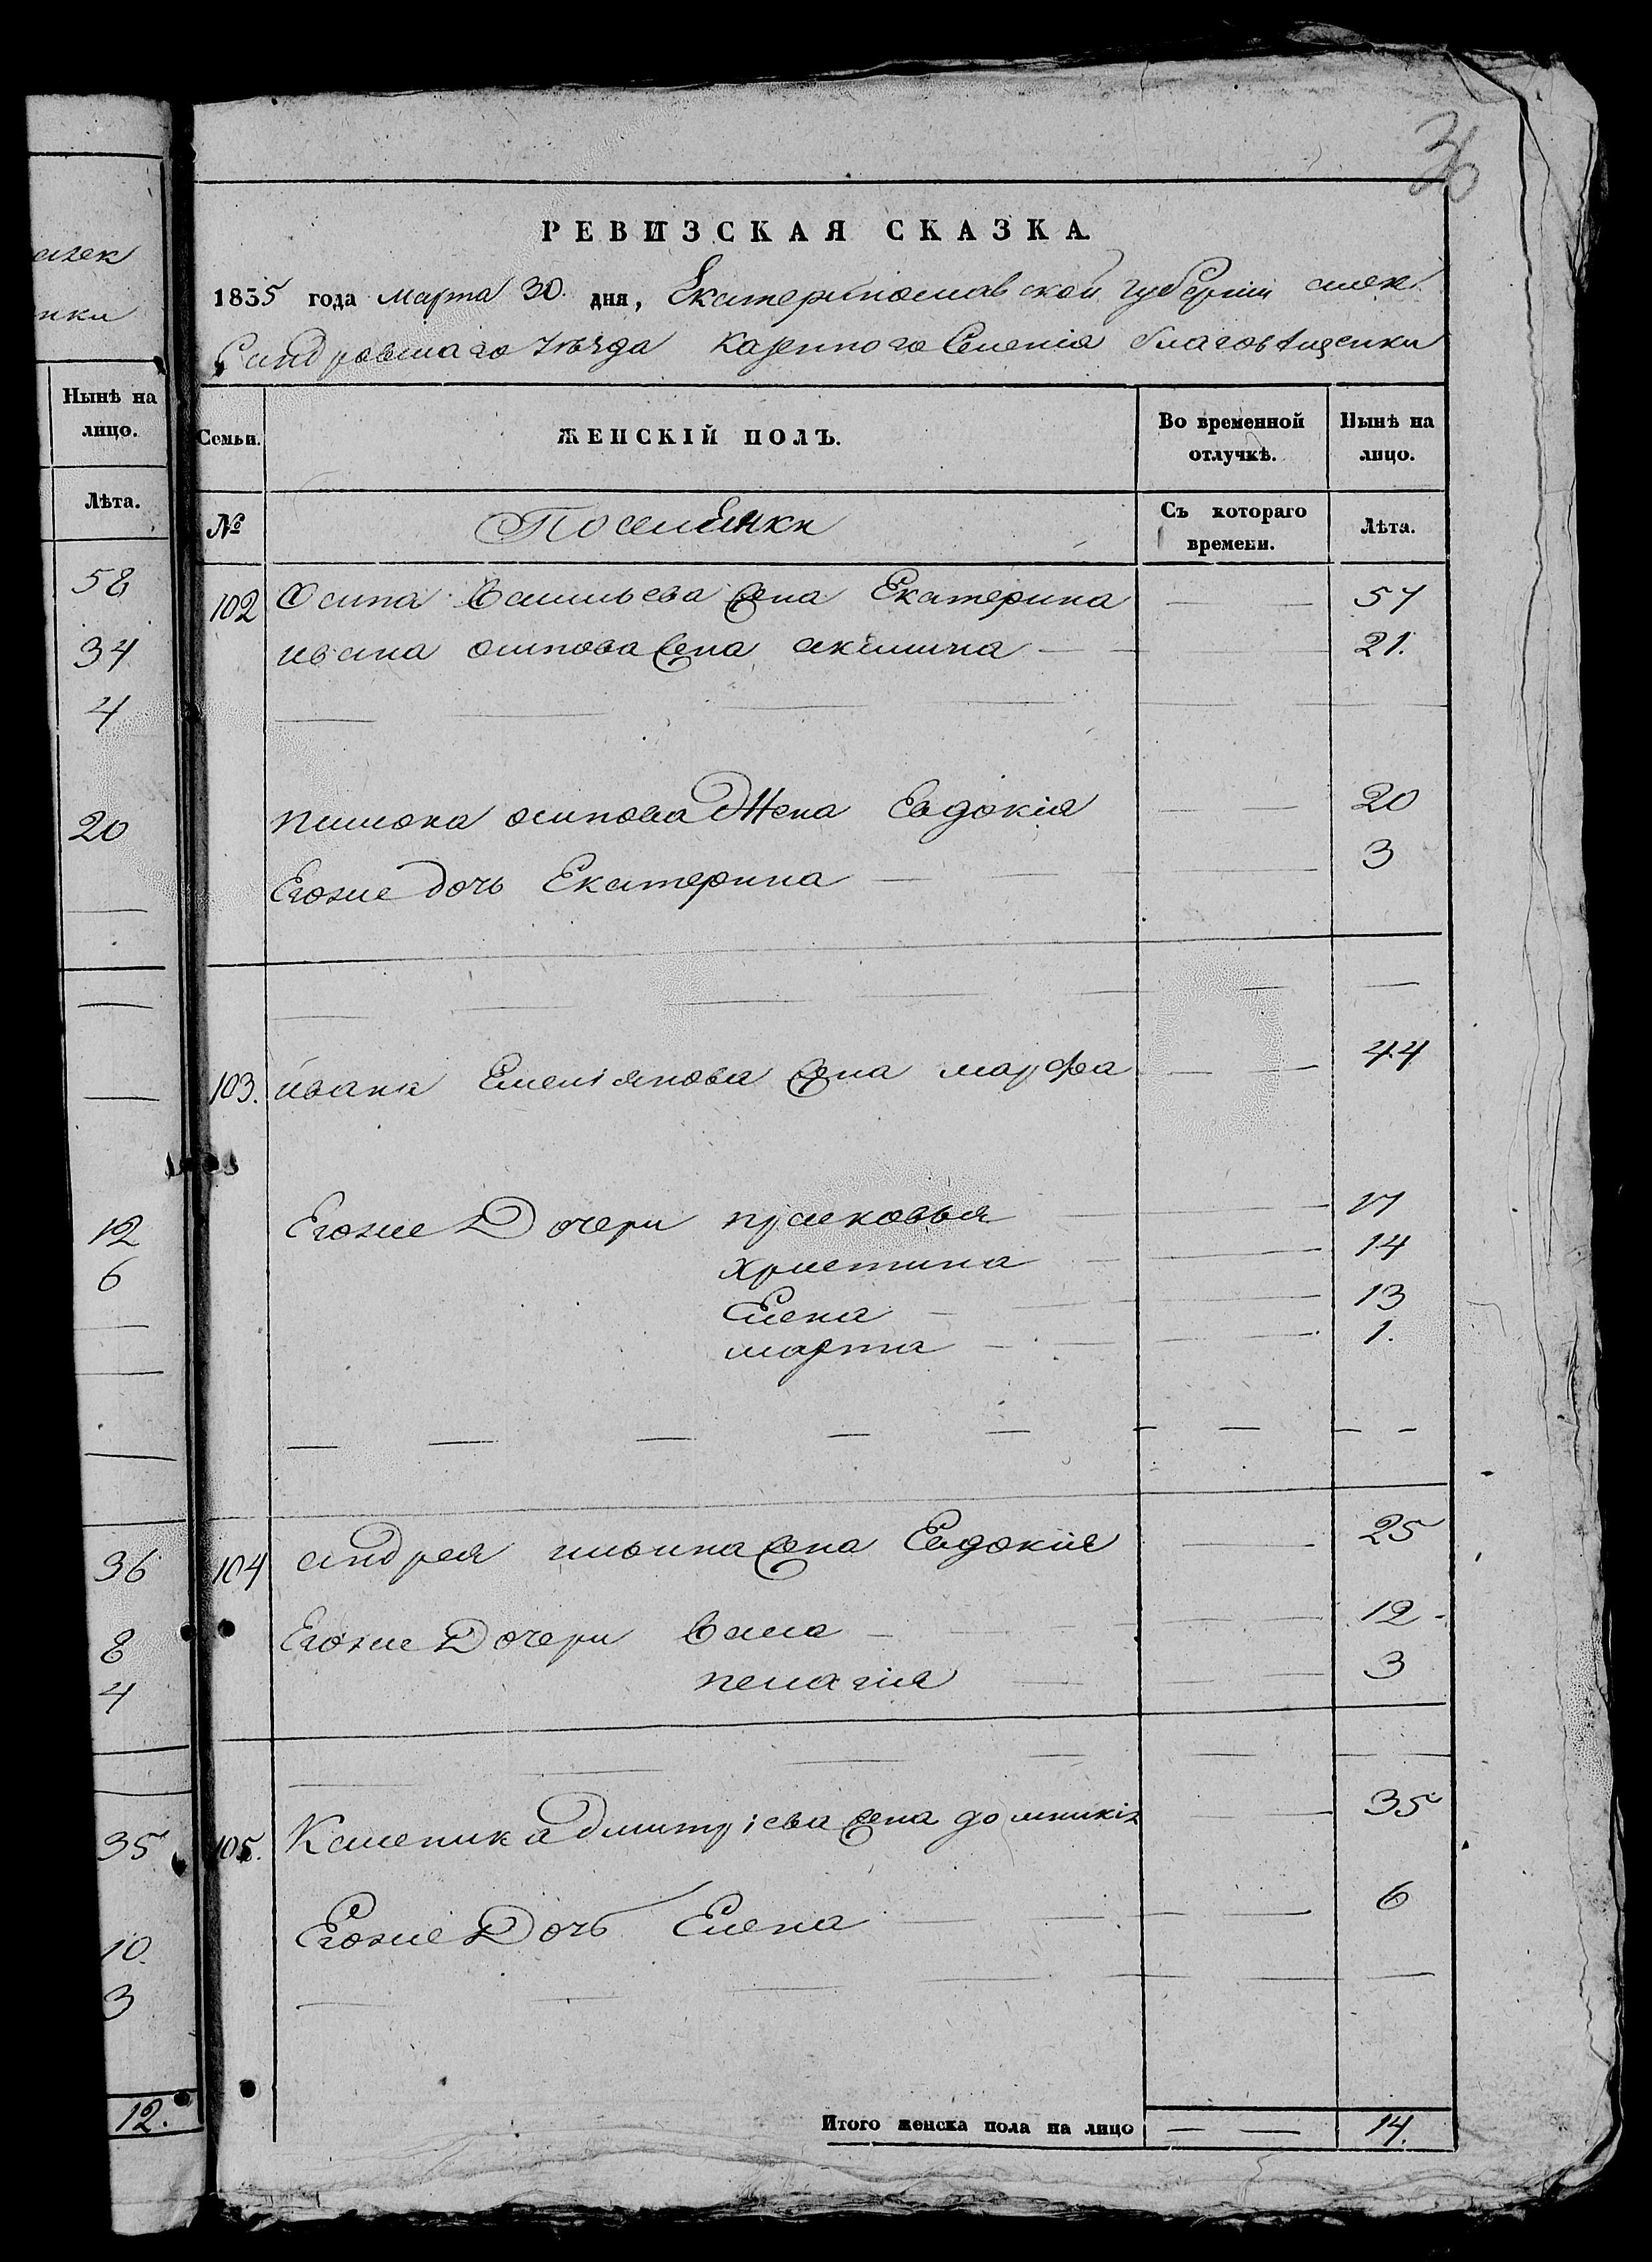 алек
нки
Нынѣ на
лицо.
Лѣта.
58
34
4
20
12
6
36
8
4
35
10.
3
12.
36
РЕВИЗСКАЯ СКАЗКА.
1835 года марта 30. дня, Екатеринославской губерніи алек
сандровскаго уѣзда казенного селенія благовѣщенки
Семьи.
ЖЕНСКІЙ ПОЛЪ.
Во временной
отлучкѣ.
Нынѣ на
лицо.
№
Поселянки
Съ котораго
времени.
Лѣта.
102 Осипа Васильева жена Екатерина — — 57
ивана осипова жена акилина — — 21.
осипова Жена Евдокія — — 20
Егоже дочь Екатерина — — 3
103. ивана Емеліянова жена марфа — — 44
Егоже Дочери прасковья — 17
христина — 14
Елена — 13
марта — 1.
104 андрея ильина жена Евдокія — 25
Егоже Дочери Васса — 12
пелагія — 3
105. Калиника дмитріева жена домникія — 35
Егоже Дочь Елена — 6
Итого женска пола на лицо — — 14.